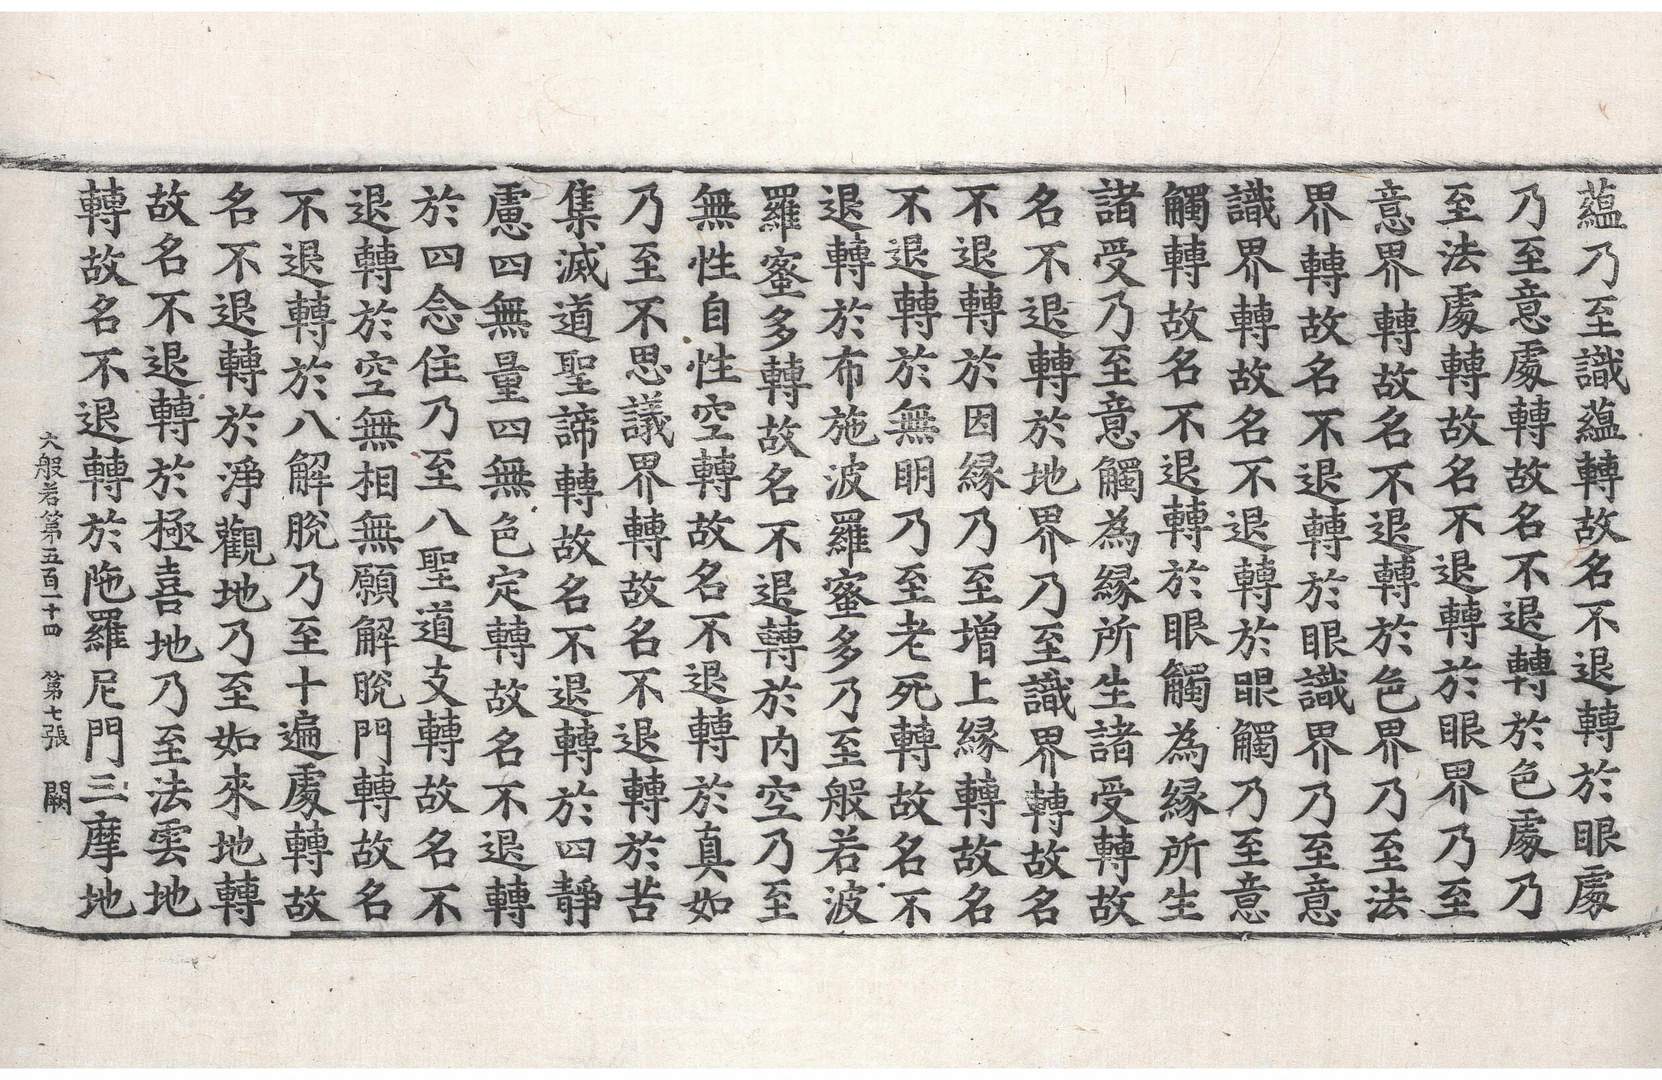 蘊乃至識蘊轉故名不退轉於眼處
乃至意處轉故名不退轉於色處乃
至法處轉故名不退轉於眼界乃至
意界轉故名不退轉於色界乃至法
界轉故名不退轉於眼識界乃至意
識界轉故名不退轉於眼觸乃至意
觸轉故名不退轉於眼觸為緣所生
諸受乃至意觸為緣所生諸受轉故
名不退轉於地界乃至識界轉故名
不退轉於因緣乃至增上緣轉故名
不退轉於無明乃至老死轉故名不
退轉於布施波羅蜜多乃至般若波
羅蜜多轉故名不退轉於內空乃至
無性自性空轉故名不退轉於真如
乃至不思議界轉故名不退轉於苦
集滅道聖諦轉故名不退轉於四靜
慮四無量四無色定轉故名不退轉
於四念住乃至八聖道支轉故名不
退轉於空無相無願解脫門轉故名
不退轉於八解脫乃至十遍處轉故
名不退轉於淨觀地乃至如來地轉
故名不退轉於極喜地乃至法雲地
轉故名不退轉於陁羅尼門三摩地
大般若第五百一十四 第七張 闕